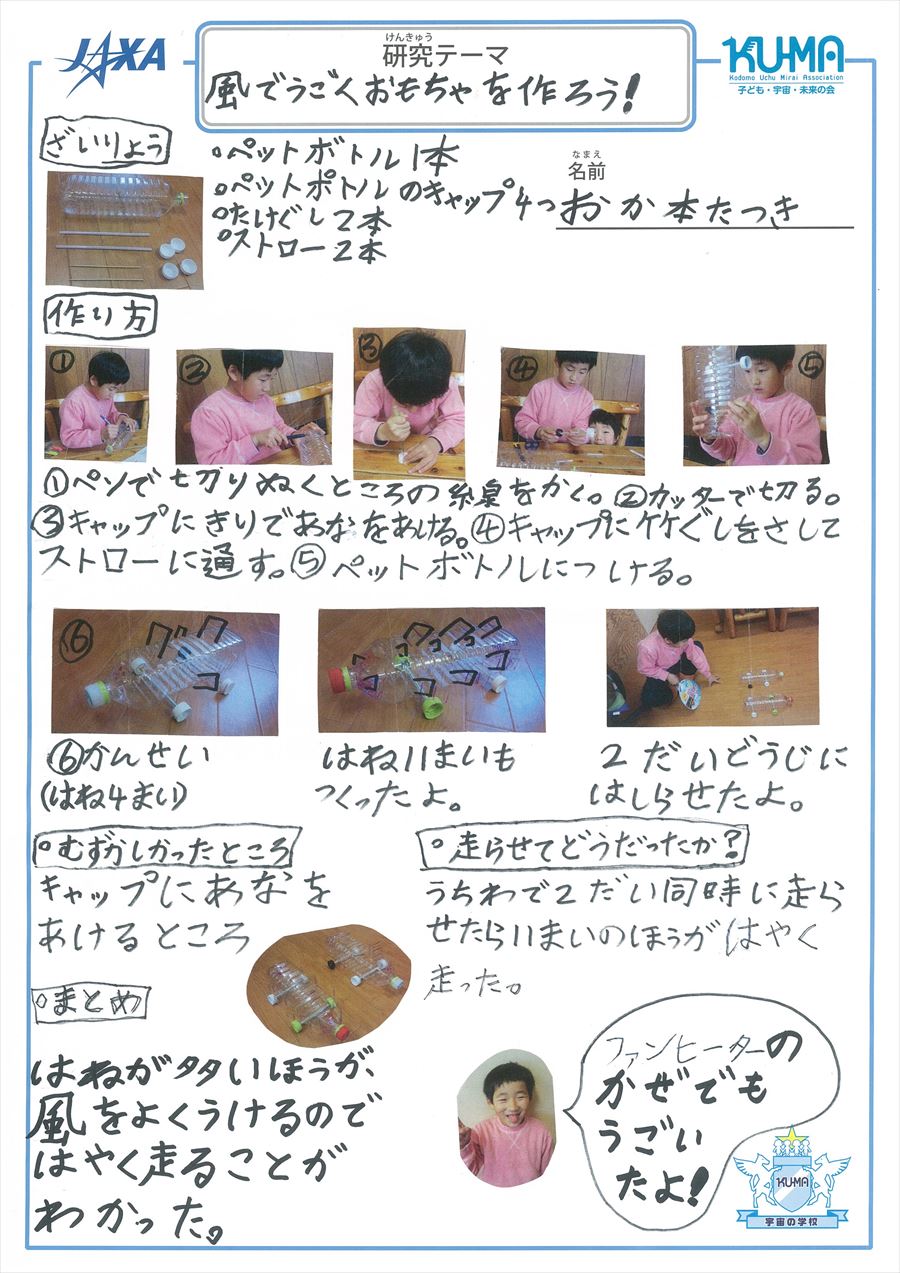 JAXA
けんきゅう
研究テーマ
風でうごくおもちゃを作ろう!
KU-MA
Kodomo Uchu Mirai Association
子ども・宇宙・未来の会
ざいりょう
○ペットボトル1本
○ペットボトルのキャップ4つ
○たけぐし2本
○ストロー2本
なまえ
名前
おか本たつき
作り方
①
②
③
④
⑤
①ペンで切りぬくところの線をかく。②カッターで切る。
③キャップにきりであなをあける。④キャップに竹ぐしをさして
ストローに通す。⑤ペットボトルにつける。
⑥
⑥かんせい
(はね4まい)
はね11まいも
つくったよ。
2だいどうじに
はしらせたよ。
○むずかしかったところ
キャップにあなを
あけるところ
○走らせてどうだったか?
うちわで2だい同時に走ら
せたら11まいのほうがはやく
走った。
○まとめ
はねが多いほうが、
風をよくうけるので
はやく走ることが
わかった。
ファンヒーターの
かぜでも
うごい
たよ!
KU-MA
宇宙の学校